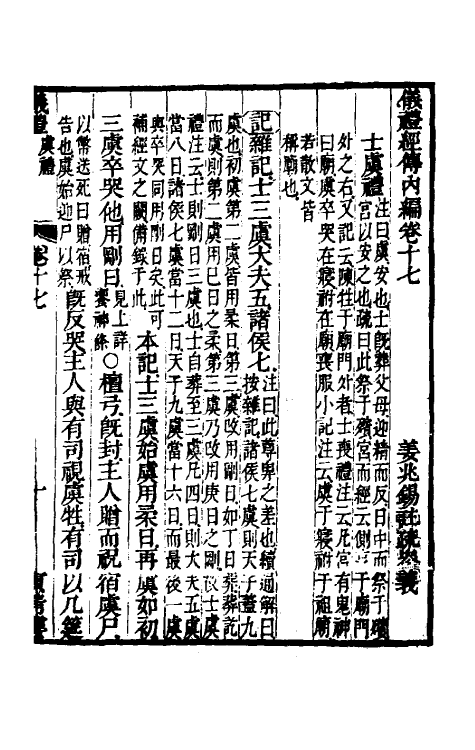 儀禮經傳內編卷十七　姜兆錫註疏參義
士虞禮 注曰虞安也士既葬父母迎精而反日中而祭于殯
宮以安之也疏曰此祭于殯宮而經云側亨于廟門
外之右又記云陳牲于廟門外者士喪禮注云凡宮有鬼神
曰廟虞卒哭在寢祔在廟喪服小記注云虞于寢祔于祖廟
若散文皆
稱廟也
記雜記士三虞大夫五諸侯七 注曰此尊卑之差也續通解曰
按雜記諸侯七虞則天子蓋九
虞也初虞第二虞皆用柔日第三虞改用剛日如丁日葬葬訖
而虞則第二虞用巳日之柔第三虞乃改用庚日之剛故士虞
禮注云士則剛日三虞也士自葬至三虞凡四日則大夫五虞
當八日諸侯七虞當十二日天子九虞當十六日而最後一虞
與卒哭同用剛日矣此可
補經文之闕備錄于此 本記士三虞始虞用柔日再虞如初
三虞卒哭他用剛日 見上詳
饗神條 ○檀弓既封主人贈而祝宿虞尸
以幣送死曰贈宿戒
告也虞始迎尸以祭 既反哭主人與有司視虞牲有司以几筵
儀禮　虞禮　卷十七　一